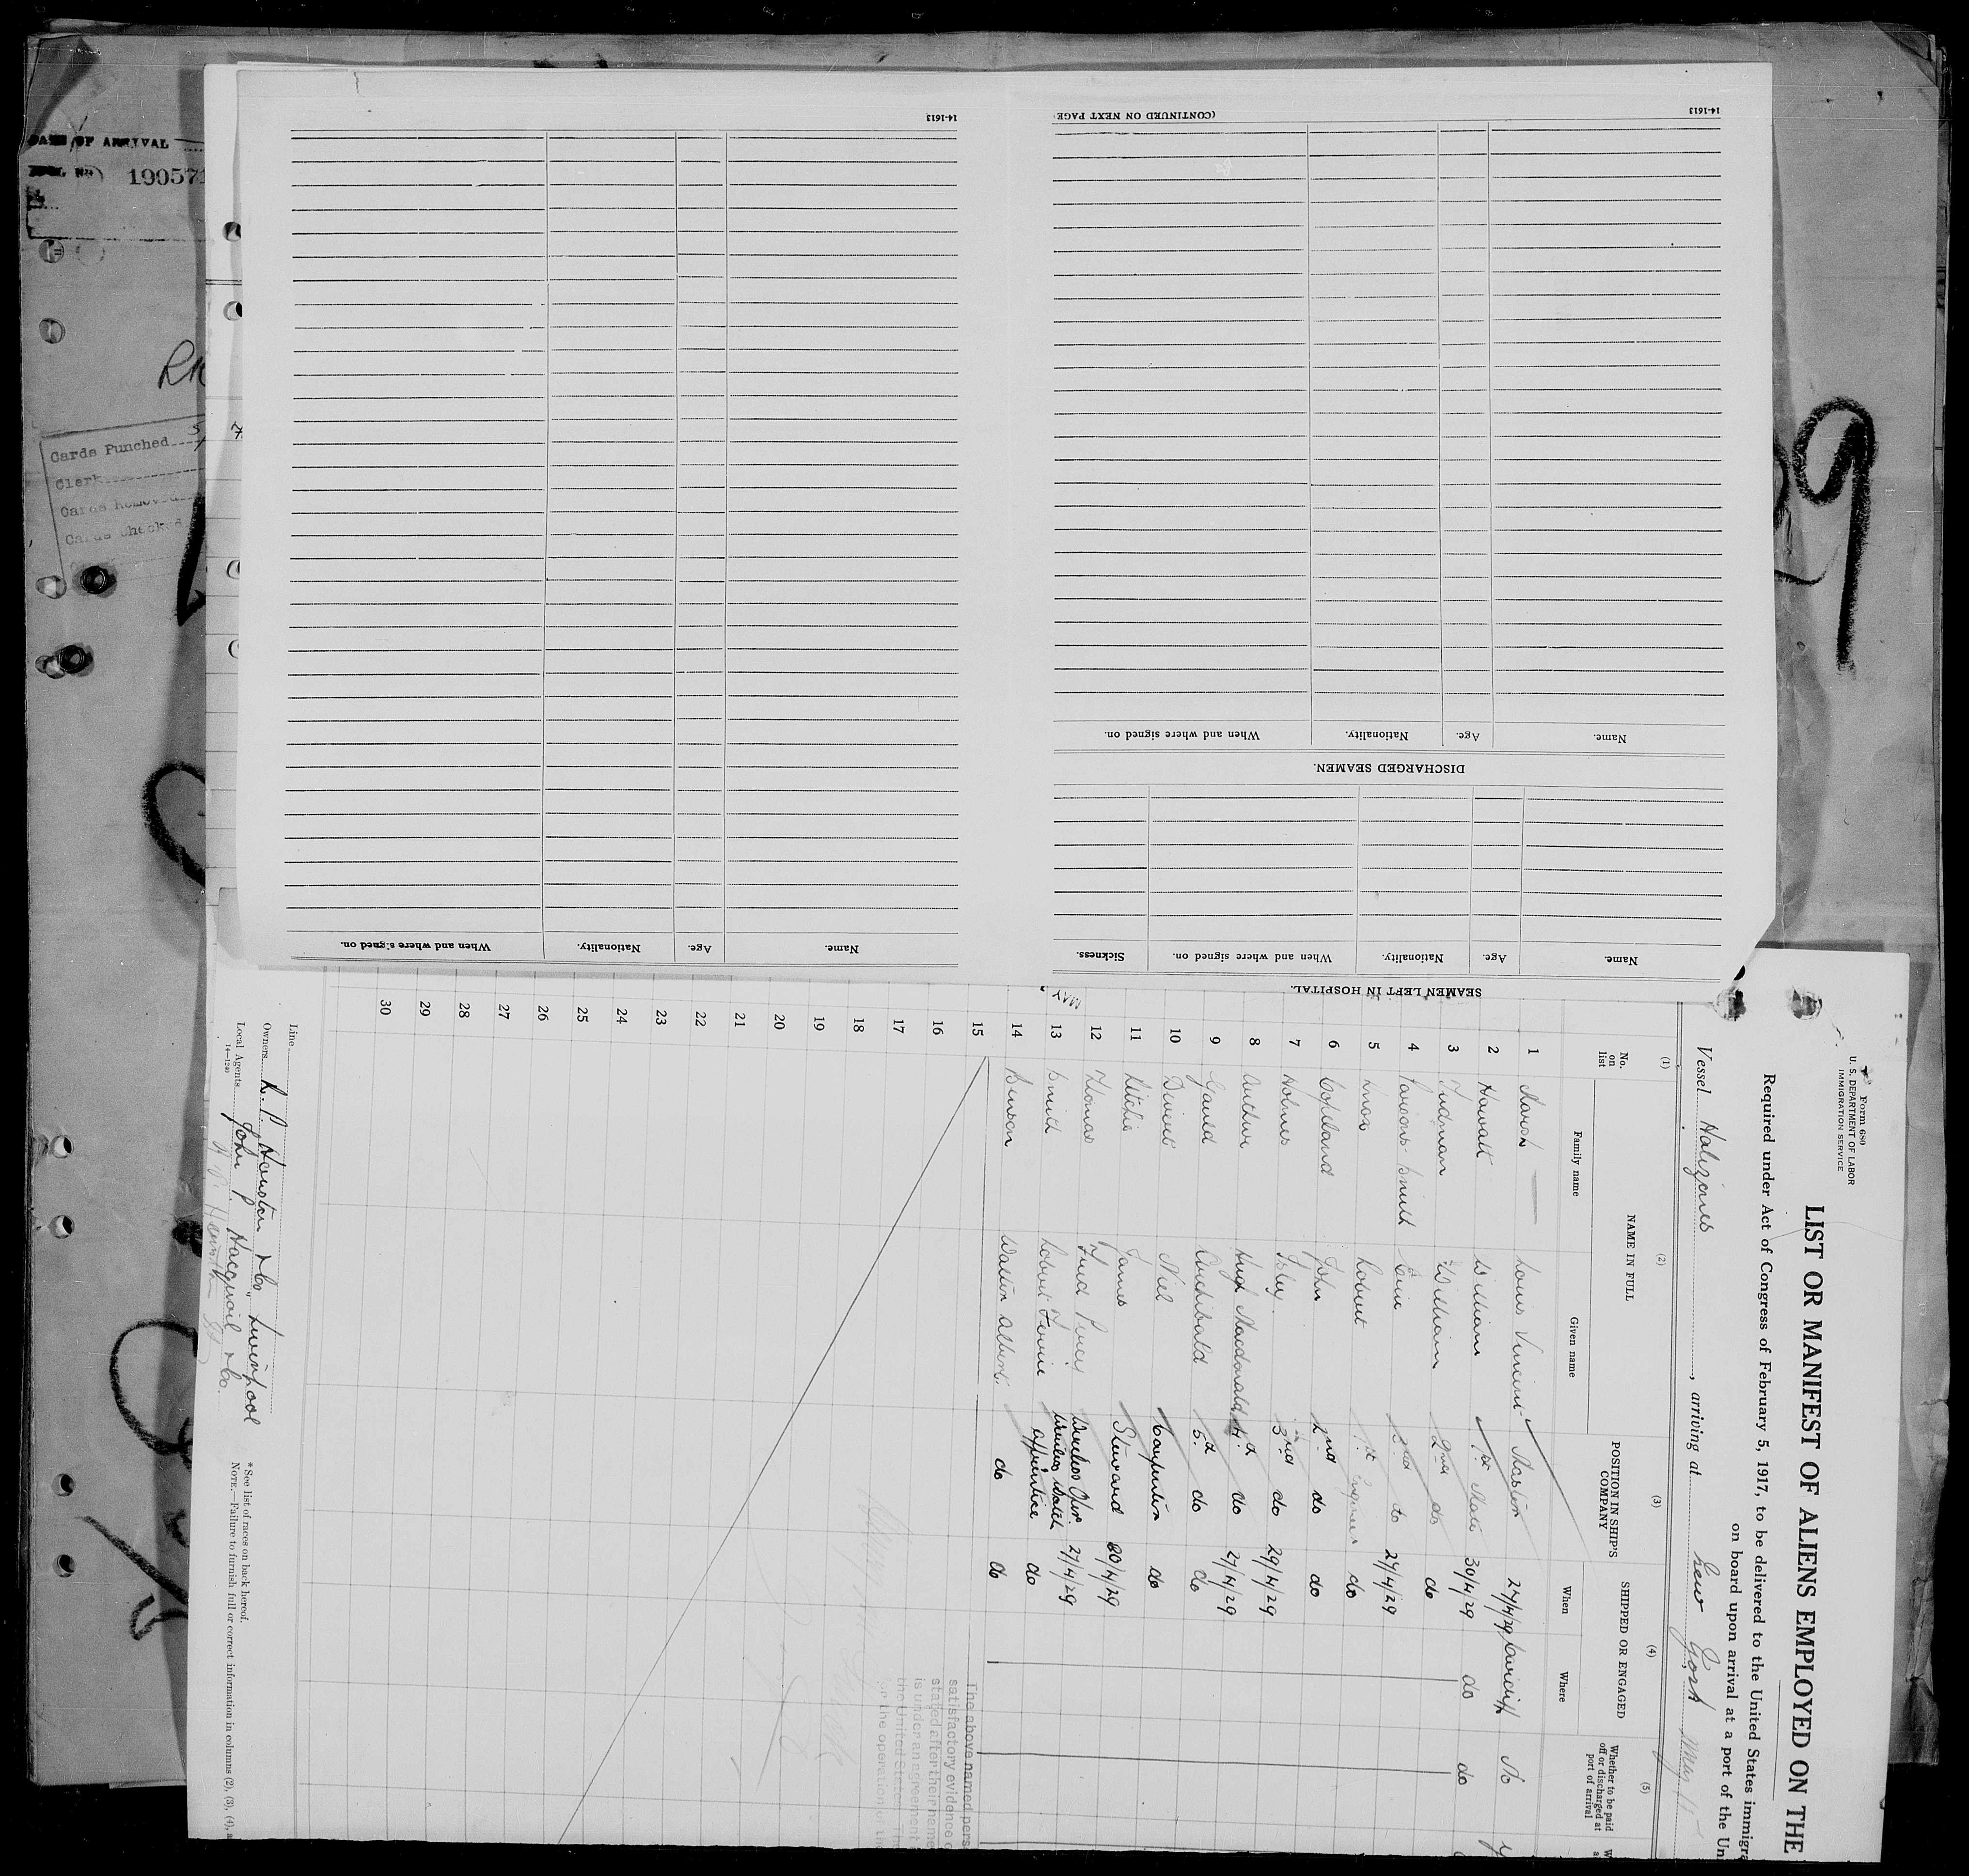 DATE OF ARRIVAL
190571
Cards Punched
Clerk
Cards Removed
Cards Checked
14-1613
(CONTINUED ON NEXT PAGE)
14-1613
When and where signed on. Nationality. Age. Name.
DISCHARGED SEAMEN.
Sickness. When and where signed on. Nationality. Age. Name.
SEAMEN LEFT IN HOSPITAL.
When and where signed on. Nationality. Age. Name.
MAY
Form 680
U. S. DEPARTMENT OF LABOR
IMMIGRATION SERVICE
LIST OR MANIFEST OF ALIENS EMPLOYED ON THE
Required under Act of Congress of February 5, 1917, to be delivered to the United States immigra
on board upon arrival at a port of the Un
Vessel Halizones, arriving at New York May
(1) (2) (3) (4) (5)
No. on list
NAME IN FULL
Family name Given name
POSITION IN SHIP'S COMPANY
SHIPPED OR ENGAGED
When Where
Whether to be paid off or discharged at port of arrival
1 Marsh Louis Vincent Master 27/4/29 Cardiff No
2 Howatt William 1st Mate 30/4/29 do do
3 Tudman William 2nd do do
4 Parsons-Smith 3rd do 27/4/29
5 Knox Robert 1st Engineer do
6 Copland John 2nd do do
7 Holmes 3rd do 29/4/29
8 Arthur Hugh Macdonald 4th do 27/4/29
9 Gauld Archibald 5th do do
10 Neil Carpenter do
11 Ritchie James Steward 30/4/29
12 Thomas Fred Percy Wireless Opr. 27/4/29
13 Smith Robert Wireless Watch apprentice do
14 Benson Walter Albert do do
15
16
17
18
19
20
21
22
23
24
25
26
27
28
29
30
The above named pers
satisfactory evidence o
stated after their name
is under an agreement
the United States
or the operation of the
Line
Owners R. P. Houston & Co., Liverpool
Local Agents John P. Macquoil & Co.
14—1240
* See list of races on back hereof.
NOTE.—Failure to furnish full or correct information in columns (2), (3), (4), a